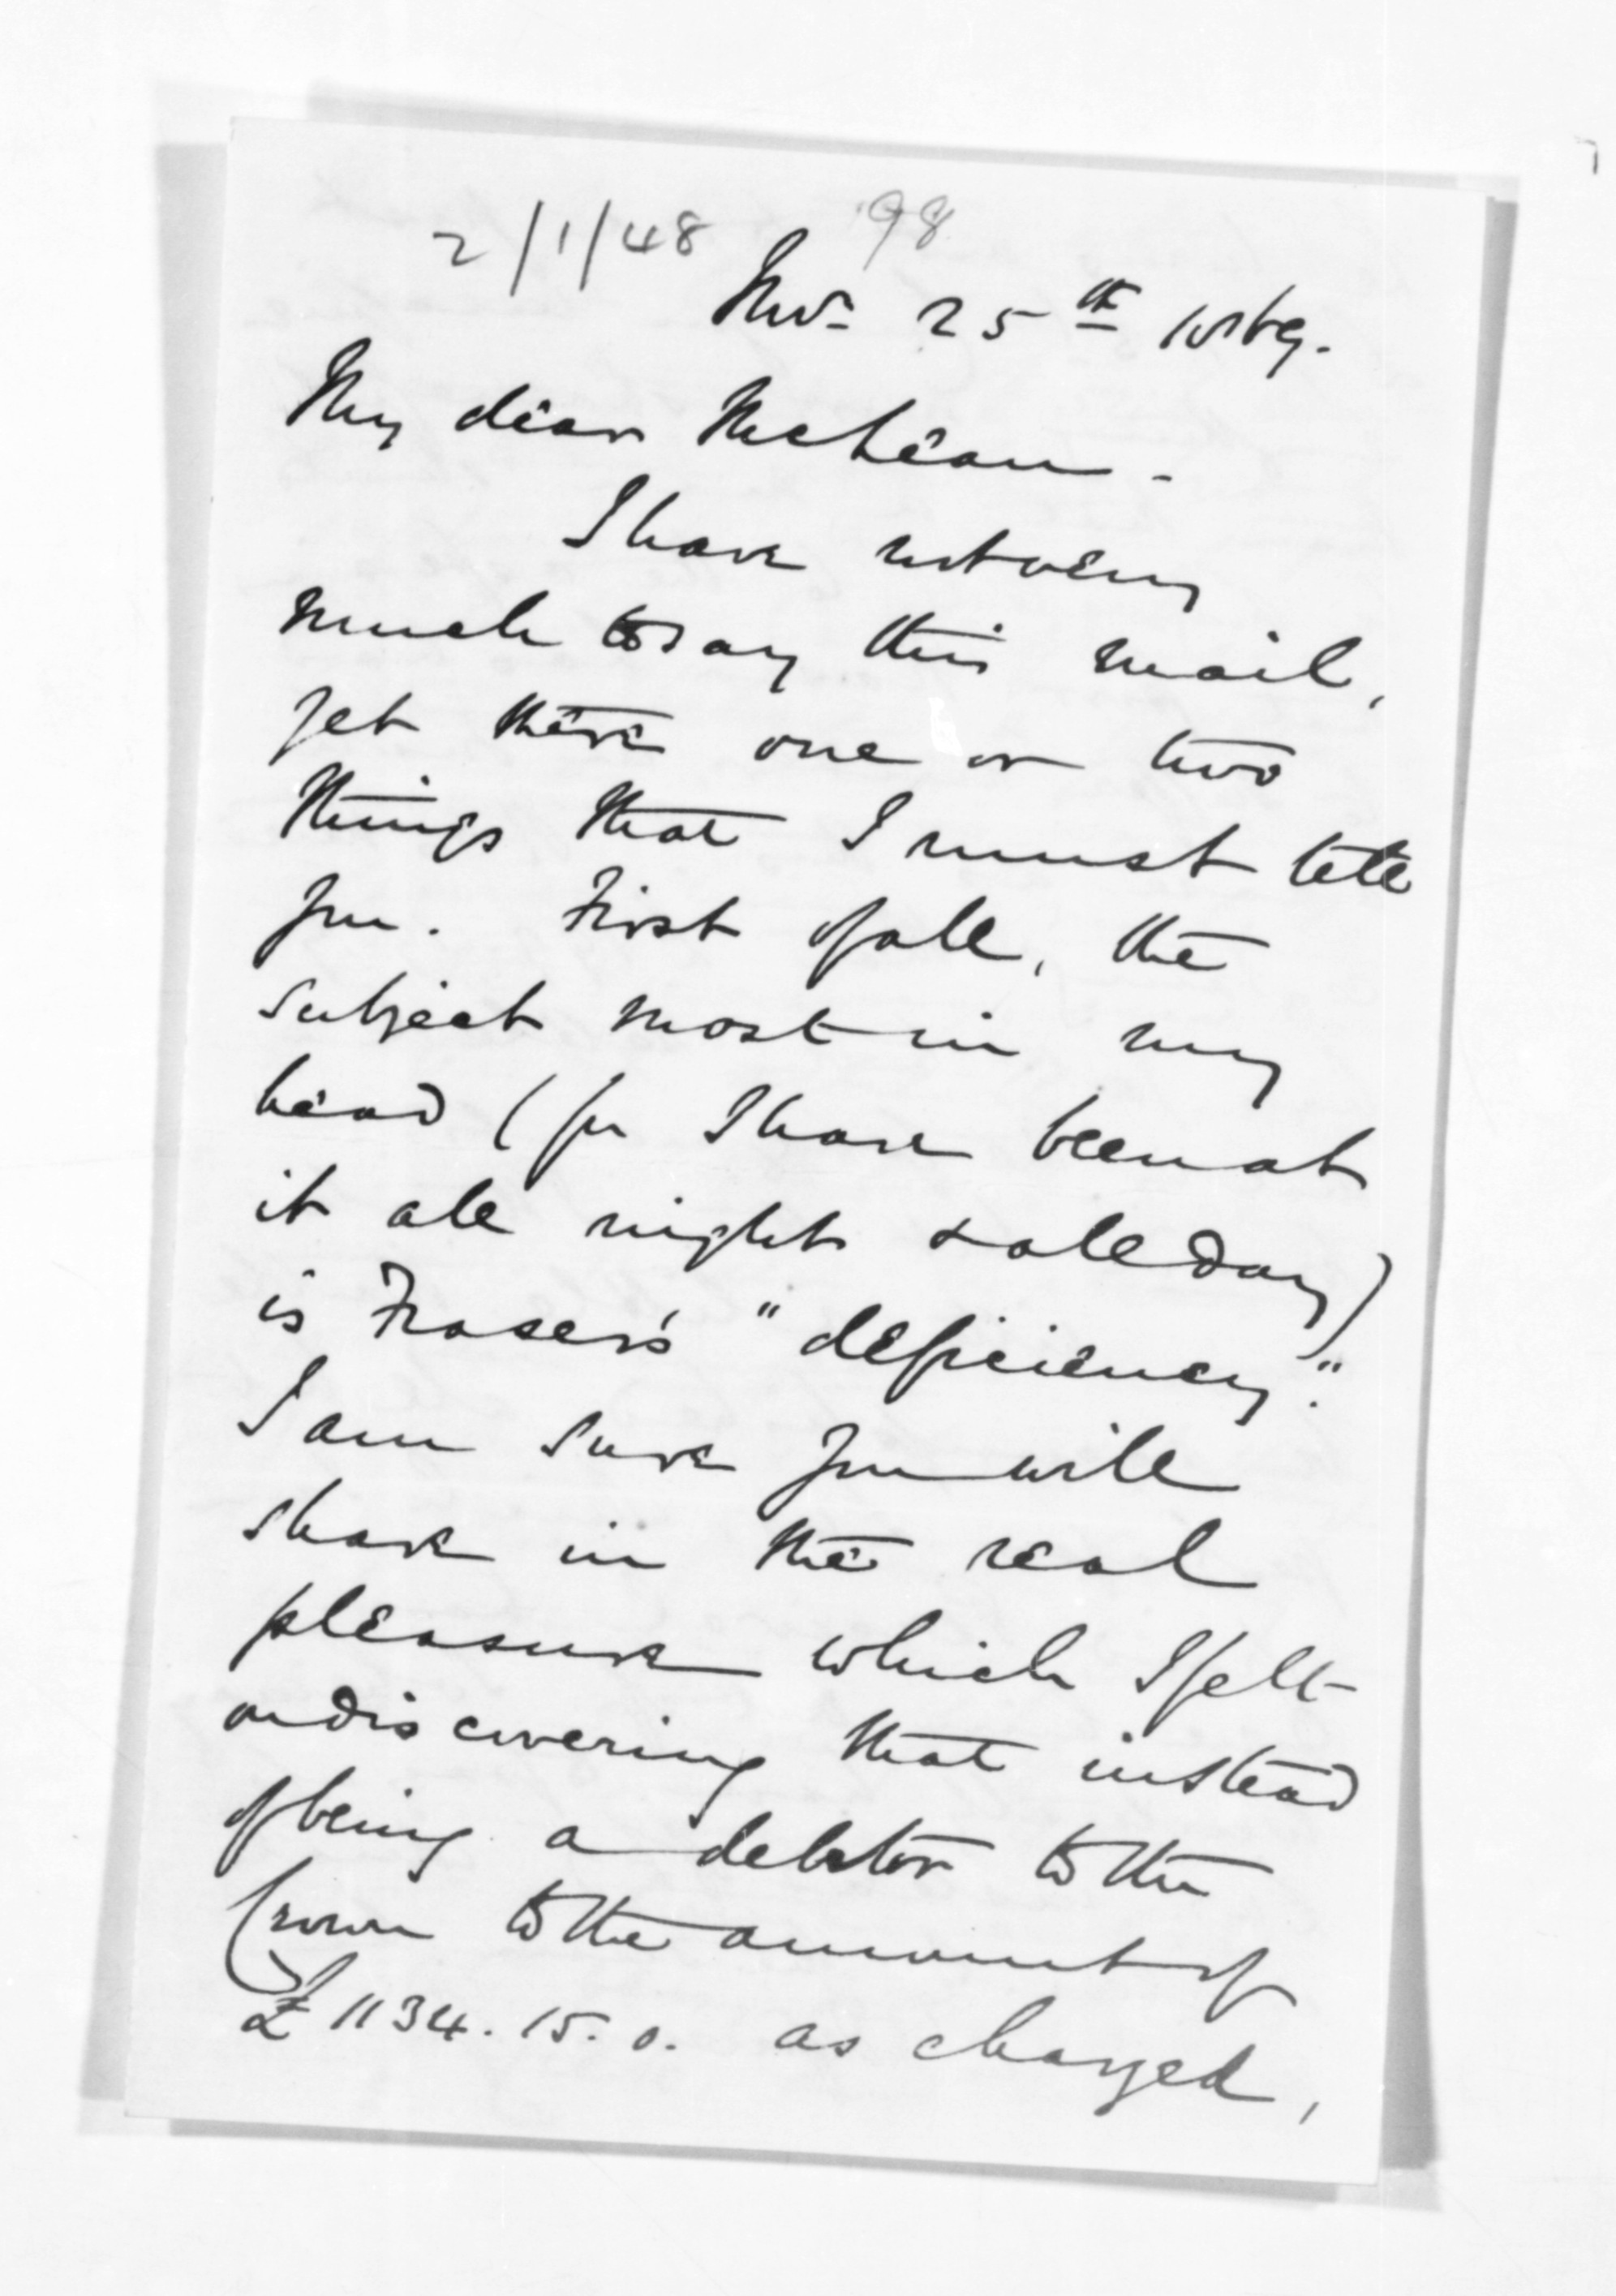 2/1/48 98
Nov. 25th 1869.
My dear McLean -
I have not very
much to say this mail,
yet there one or two
things that I must tell
you. First of all, the
subject most in my
head (for I have been at
it all night & all day)
is Fraser's "deficiency".
I am sure you will
share in the real
pleasure which I felt
on discovering that instead
of being a debtor to the
Crown to the amount of
£1134.15.0. as charged,